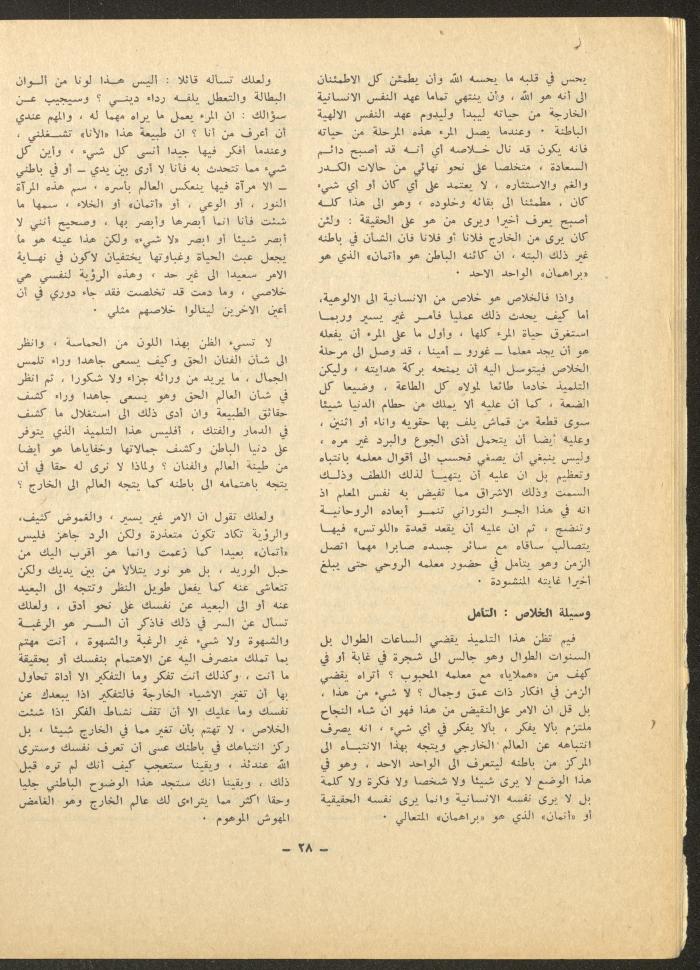 يحس في قلبه ما يحسه الله وأن يطمئن كل الاطمئنان
الى أنه هو الله ، وأن ينتهي تماما عهد النفس الانسانية
الخارجة من حياته ليبدأ وليدوم عهد النفس الالهية
الباطنة . وعندما يصل المرء هذه المرحلة من حياته
فانه يكون قد نال خلاصه أي أنه قد أصبح دائم
السعادة ، متخلصا على نحو نهائي من حالات الكدر
والغم والاستثاره ، لا يعتمد على أي كان أو أي شيء
كان . مطمئنا الى بقائه وخلوده ، وهو الى هذا كله
أصبح يعرف أخيرا ويرى من هو على الحقيقة : ولئن
كان يرى من الخارج فلانا أو فلانا فان الشأن في باطنه
غير ذلك البته ، ان كائنه الباطن هو «أتمان» الذي هو
«براهمان» الواحد الاحد .
واذا فالخلاص هو خلاص من الانسانية الى الالوهية،
أما كيف يحدث ذلك عمليا فأمر غير يسير وربما
استغرق حياة المرء كلها ، وأول ما على المرء أن يفعله
هو أن يجد معلما – غورو – أمينا ، قد وصل الى مرحلة
الخلاص فيتوسل اليه أن يمنحه بركة هدايته ، وليكن
التلميذ خادما طائعا لمولاه كل الطاعة ، وضيعا كل
الضعة ، كما أن عليه ألا يملك من حطام الدنيا شيئا
سوى قطعة من قماش يلف بها حقويه واناء أو اثنين ،
وعليه أيضا أن يتحمل أذى الجوع والبرد غير مره ،
وليس ينبغي أن يصغي فحسب الى أقوال معلمه بانتباه
وتعظيم بل ان عليه أن يتهيأ لذلك اللطف وذلك
السمت وذلك الاشراق مما تفيض به نفس المعلم اذ
انه في هذا الجو النوراني تنمو أبعاده الروحانية
وتنضج ، ثم ان عليه أن يقعد قعدة «اللوتس» فيها
يتصالب ساقاه مع سائر جسده صابرا مهما اتصل
الزمن وهو يتأمل في حضور معلمه الروحي حتى يبلغ
أخيرا غايته المنشودة .
وسيلة الخلاص : التأمل
فيم تظن هذا التلميذ يقضي الساعات الطوال بل
السنوات الطوال وهو جالس الى شجرة في غابة أو في
كهف من «هملايا» مع معلمه المحبوب ؟ أتراه يقضي
الزمن في افكار ذات عمق وجمال ؟ لا شيء من هذا ،
بل قل ان الامر على النقيض من هذا فهو ان شاء النجاح
ملتزم بألا يفكر ، بألا يفكر في أي شيء ، انه يصرف
انتباهه عن العالم الخارجي ويتجه بهذا الانتباه الى
المركز من باطنه ليتعرف الى الواحد الاحد ، وهو في
هذا الوضع لا يرى شيئا ولا شخصا ولا فكرة ولا كلمة
بل لا يرى نفسه الانسانية وانما يرى نفسه الحقيقية
أو «أتمان» الذي هو «براهمان» المتعالي .
ولعلك تسأله قائلا : أليس هذا لونا من ألوان
البطالة والتعطل يلفه رداء ديني ؟ وسيجيب عن
سؤالك : ان المرء يعمل ما يراه مهما له ، والمهم عندي
أن أعرف من أنا ؟ ان طبيعة هذا «الأنا» تشغلني ،
وعندما أفكر فيها جيدا أنسى كل شيء ، وأين كل
شيء مما تتحدث به فأنا لا أرى بين يدي – أو في باطني
– الا مرآة فيها ينعكس العالم بأسره ، سم هذه المرآة
النور ، أو الوعي ، أو «أتمان» أو الخلاء ، سمها ما
شئت فأنا انما أبصرها وأبصر بها ، وصحيح أنني لا
أبصر شيئا أو ابصر «لا شيء» ولكن هذا عينه هو ما
يجعل عبث الحياة وغباوتها يختفيان لاكون في نهاية
الامر سعيدا الى غير حد ، وهذه الرؤية لنفسي هي
خلاصي ، وما دمت قد تخلصت فقد جاء دوري في أن
أعين الاخرين لينالوا خلاصهم مثلي .
لا تسيء الظن بهذا اللون من الحماسة ، وانظر
الى شأن الفنان الحق وكيف يسعى جاهدا وراء تلمس
الجمال ، ما يريد من ورائه جزاء ولا شكورا ، ثم انظر
في شأن العالم الحق وهو يسعى جاهدا وراء كشف
حقائق الطبيعة وان أدى ذلك الى استغلال ما كشف
في الدمار والفتك ، أفليس هذا التلميذ الذي يتوفر
على دنيا الباطن وكشف جمالاتها وخفاياها هو أيضا
من طينة العالم والفنان ؟ ولماذا لا نرى له حقا في أن
يتجه باهتمامه الى باطنه كما يتجه العالم الى الخارج ؟
ولعلك تقول ان الامر غير يسير ، والغموض كثيف،
والرؤية تكاد تكون متعذرة ولكن الرد جاهز فليس
«أتمان» بعيدا كما زعمت وانما هو أقرب اليك من
حبل الوريد ، بل هو نور يتلألأ من بين يديك ولكن
تتعاشى عنه كما يفعل طويل النظر وتتجه الى البعيد
عنه أو الى البعيد عن نفسك على نحو أدق ، ولعلك
تسأل عن السر في ذلك فاذكر أن السر هو الرغبة
والشهوة ولا شيء غير الرغبة والشهوة ، أنت مهتم
بما تملك منصرف اليه عن الاهتمام بنفسك أو بحقيقة
ما أنت ، وكذلك أنت تفكر وما التفكير الا أداة تحاول
بها أن تغير الاشياء الخارجة فالتفكير اذا يبعدك عن
نفسك وما عليك الا أن تقف نشاط الفكر اذا شئت
الخلاص ، لا تهتم بأن تغير مما في الخارج شيئا ، بل
ركز انتباهك في باطنك عسى أن تعرف نفسك وسترى
الله عندئذ ، ويقينا ستعجب كيف أنك لم تره قبل
ذلك ، ويقينا انك ستجد هذا الوضوح الباطني جليا
وحقا اكثر مما يتراءى لك عالم الخارج وهو الغامض
المهوش الموهوم .
– ٢٨ –